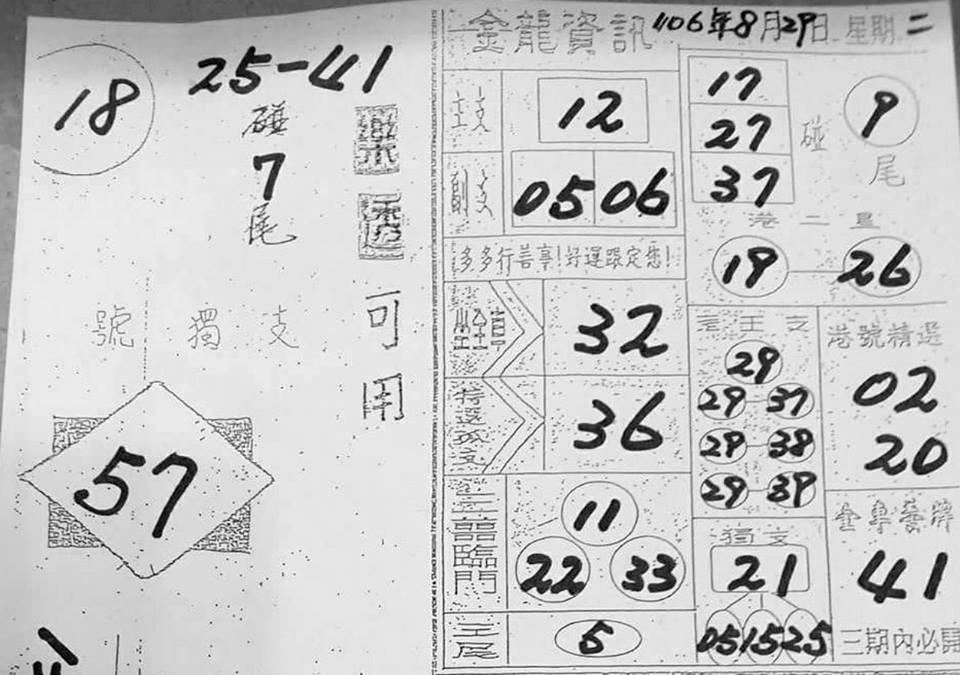 18
25-41
碰
7
尾
樂透
可用
號獨支
57
金龍資訊
106年8月29日 星期二
主支
12
副支
05 06
多多行善亭!好運跟定您!
坐車
32
特選孤支
36
臨門
11
22 33
尾
5
17
27
37
碰
9
尾
港二星
19 26
王支
29
29 37
29 38
29 39
港號精選
02
20
獨支
21
05 15 25
41
三期內必開